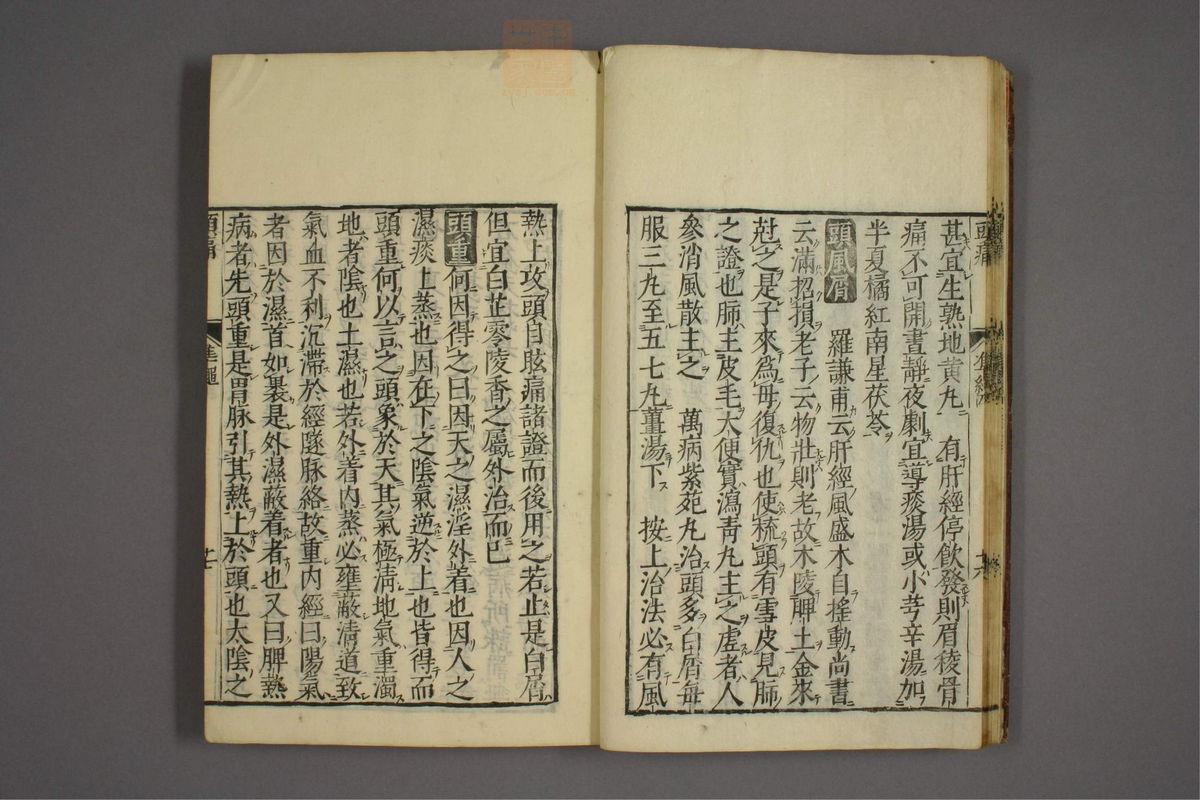 甚宜生熟地黄丸　有肝經停飲發則眉稜骨
痛不可開晝靜夜劇宜導痰湯或小芎辛湯加
半夏橘紅南星茯苓
頭風屑　羅謙甫云肝經風盛木自搖動尚書
云滿招損老子云物壯則老故木陵脾土金來
尅之是子來爲母復仇也使梳頭有雪皮見肺
之證也肺主皮毛大便實瀉青丸主之虚者人
參消風散主之　萬病紫菀丸治頭多白屑每
服三丸至五七丸薑湯下　按上治法必有風
熱上攻頭目眩痛諸證而後用之若止是白屑
但宜白芷零陵香之屬外治而已
頭重何因得之曰因天之濕淫外着也因人之
濕痰上蒸也因在下之陰氣逆於上也皆得而
頭重何以言之頭象於天其氣極清地氣重濁
地者陰也土濕也若外着内蒸必壅蔽清道致
氣血不利沉滯於經隧脉絡故重内經曰陽氣
者因於濕首如裹是外濕蔽着者也又曰脾熱
病者先頭重是胃脉引其熱上於頭也太陰之
頭痛